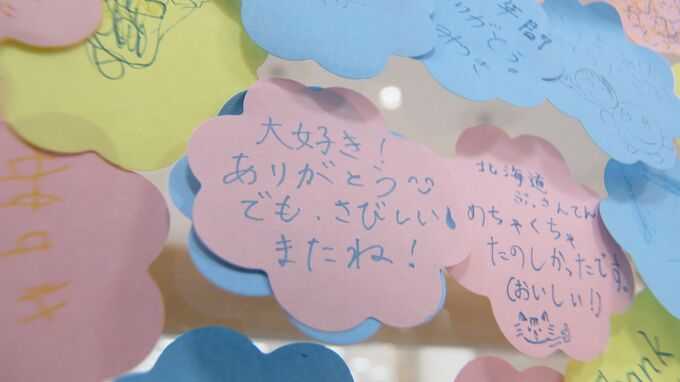 大好き!
ありがとう
でも、さびしい
またね!
北海道
ぶっさんてん
めちゃくちゃ
たのしかったです。
(おいしい!)
年間
りがとう。